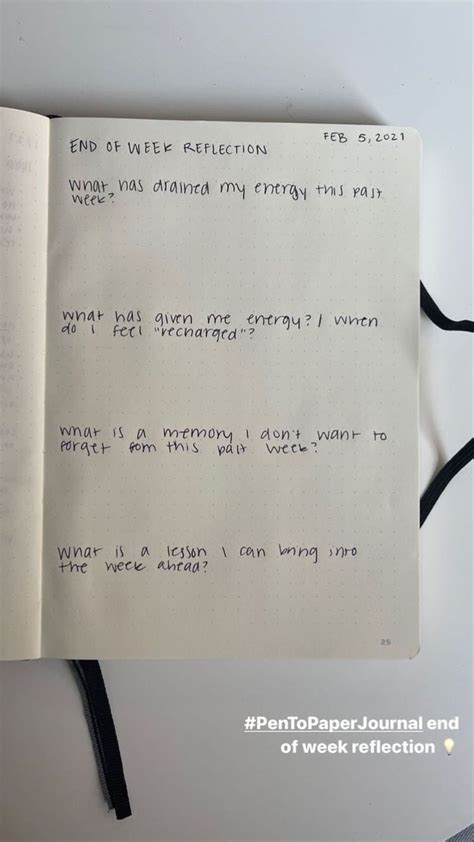 FEB 5, 2021
END OF WEEK REFLECTION
What has drained my energy this past
week?
What has given me energy? / When
do I feel "recharged"?
What is a memory I don't want to
forget fom this past week?
What is a lesson I can bring into
the week ahead?
25
#PenToPaperJournal end
of week reflection 💡